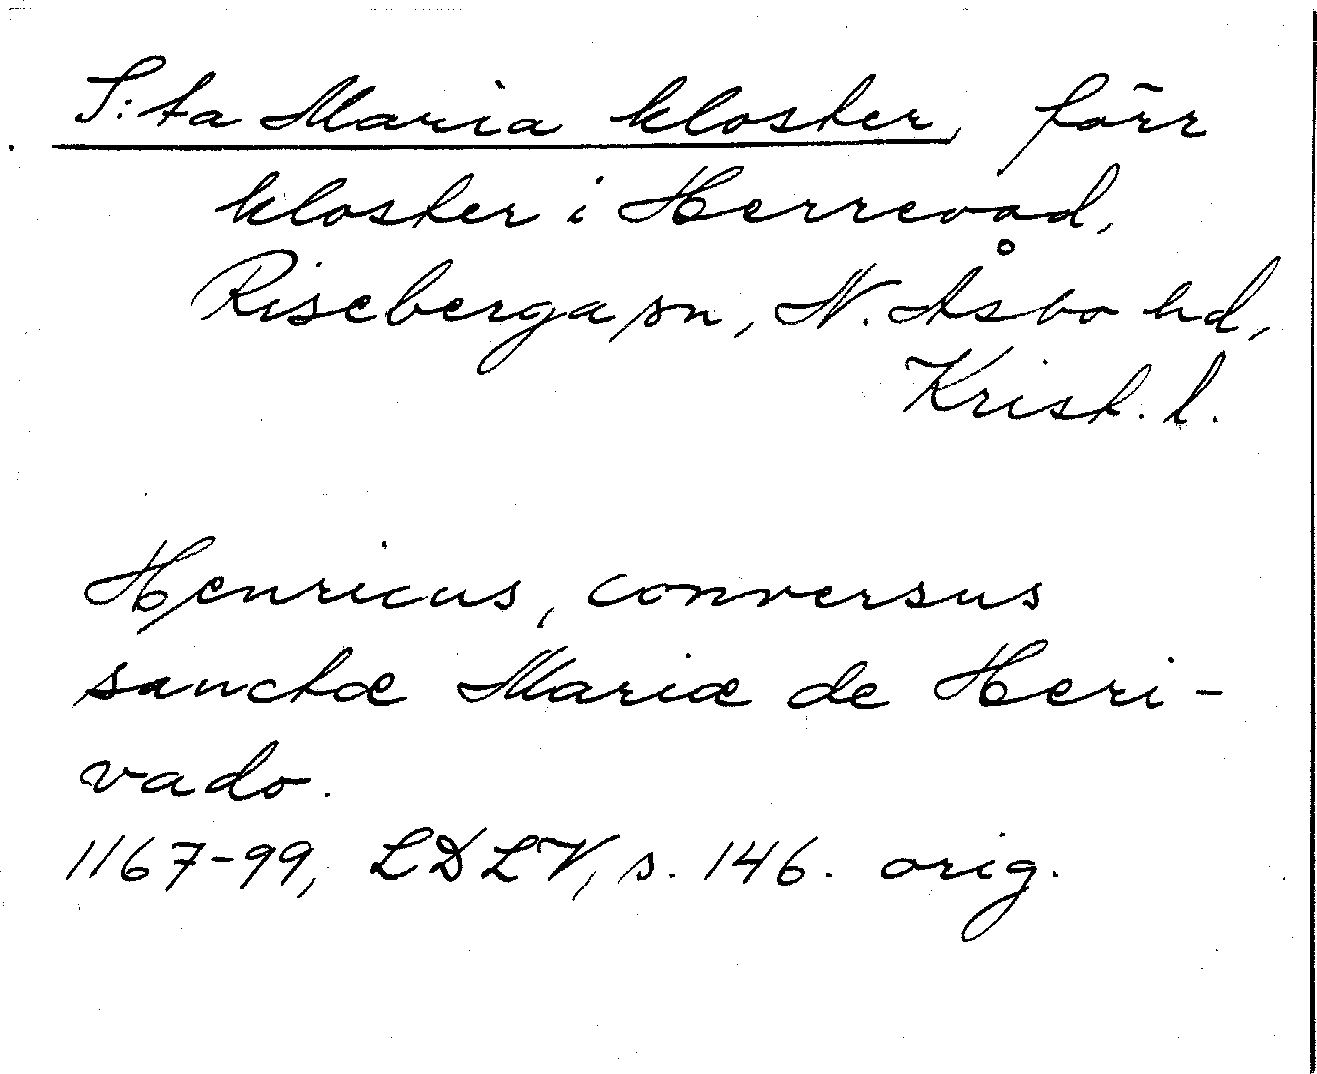 S:ta Maria kloster, förr
kloster i Herrevad,
Riseberga sn, N. Åsbo hd,
Krist. l.
Henricus, conversus
sanctæ Mariæ de Heri-
vado.
1167-99, LDLV, s. 146. orig.